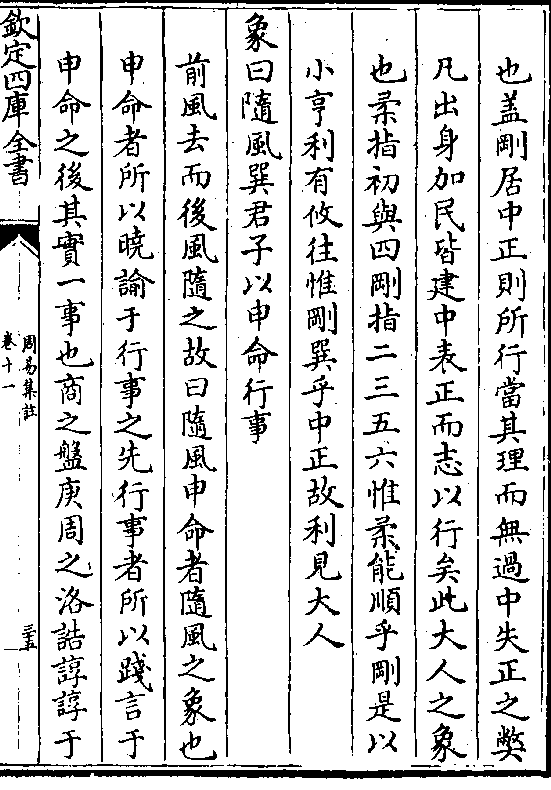 也蓋剛居中正則所行當其理而無過中失正之弊
凡出身加民皆建中表正而志以行矣此大人之象
也柔指初與四剛指二三五六惟柔能順乎剛是以
小亨利有攸往惟剛巽乎中正故利見大人
象曰隨風巽君子以申命行事
前風去而後風隨之故曰隨風申命者隨風之象也
申命者所以曉諭于行事之先行事者所以踐言于
申命之後其實一事也商之盤庚周之洛誥諄諄于
欽定四庫全書
周易集註
卷十一
三五